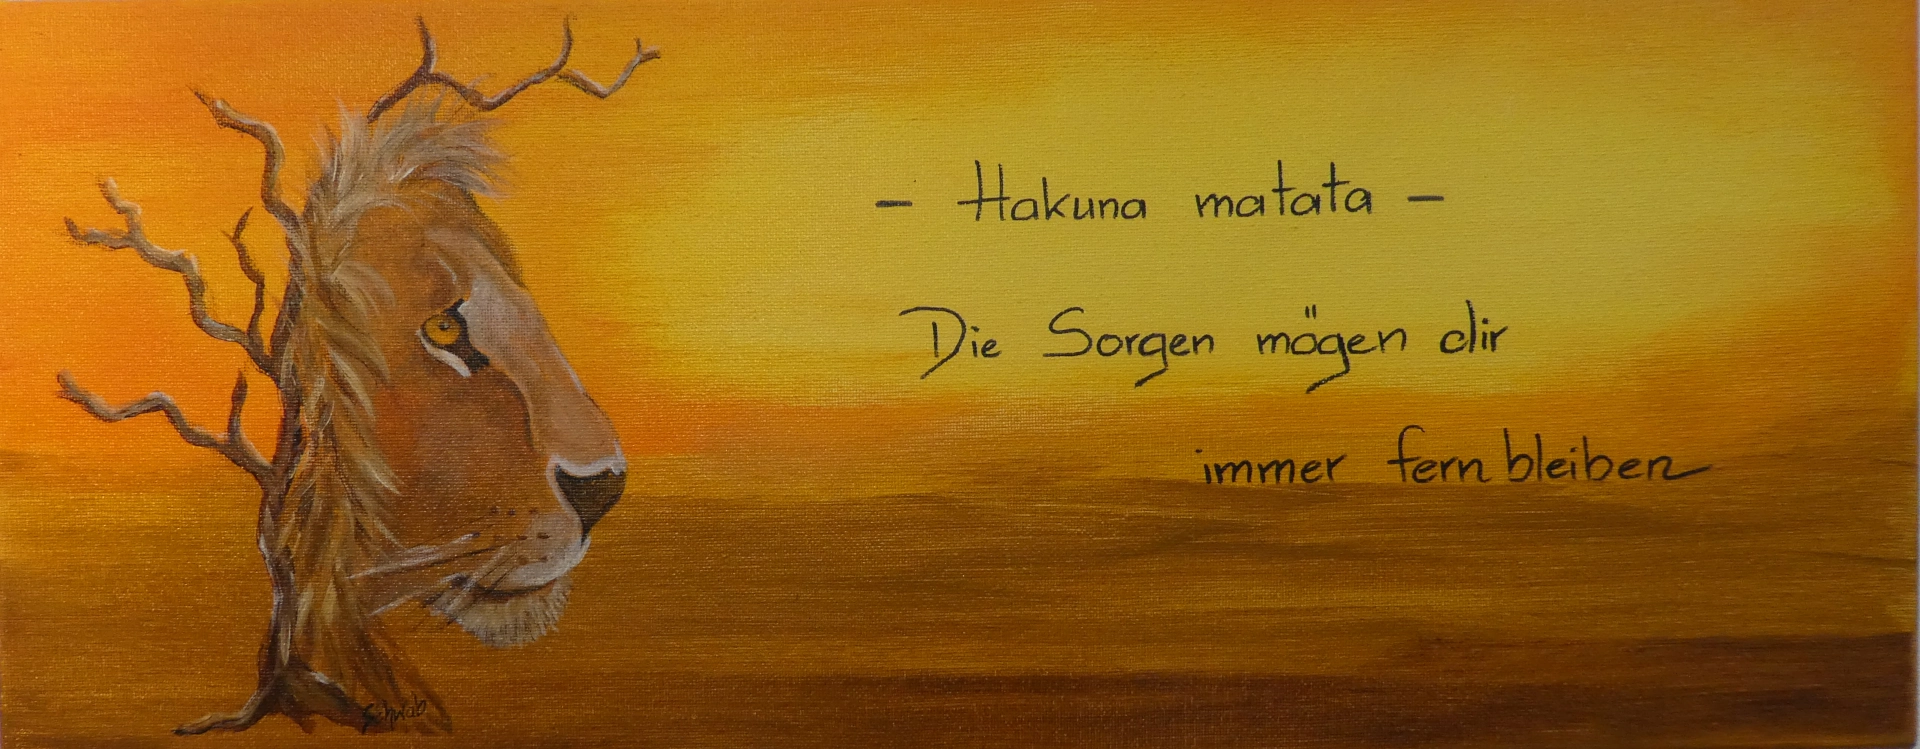 - Hakuna matata -
Die Sorgen mögen dir
immer fern bleiben
Schwab